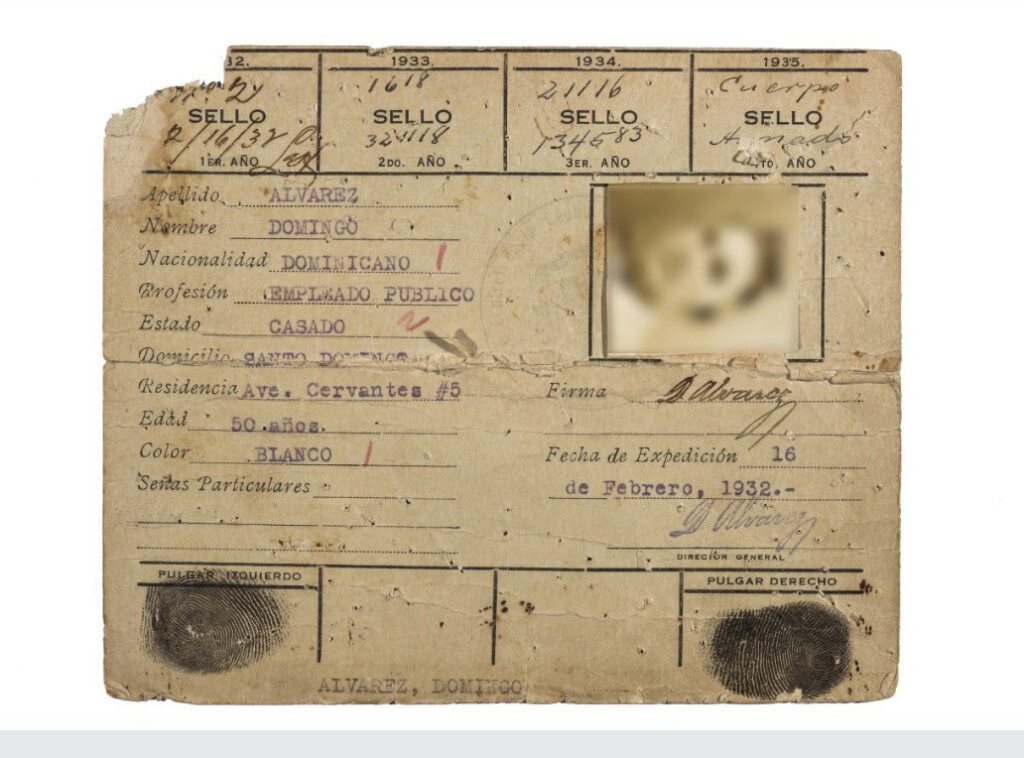 32. 1933. 1934. 1935.
2 1618 21116 Cuerpo
SELLO SELLO SELLO SELLO
2/16/32 324118 134583
1ER. AÑO 2DO. AÑO 3ER. AÑO TO. AÑO
Apellido ALVAREZ
Nombre DOMINGO
Nacionalidad DOMINICANO 1
Profesión EMPLEADO PUBLICO
Estado CASADO
Domicilio SANTO DOMINGO
Residencia Ave. Cervantes #5
Edad 50 años.
Color BLANCO 1
Señas Particulares
Firma D Alvarez
Fecha de Expedición 16
de Febrero, 1932.-
D Alvarez
DIRECTOR GENERAL
PULGAR IZQUIERDO
PULGAR DERECHO
ALVAREZ, DOMINGO